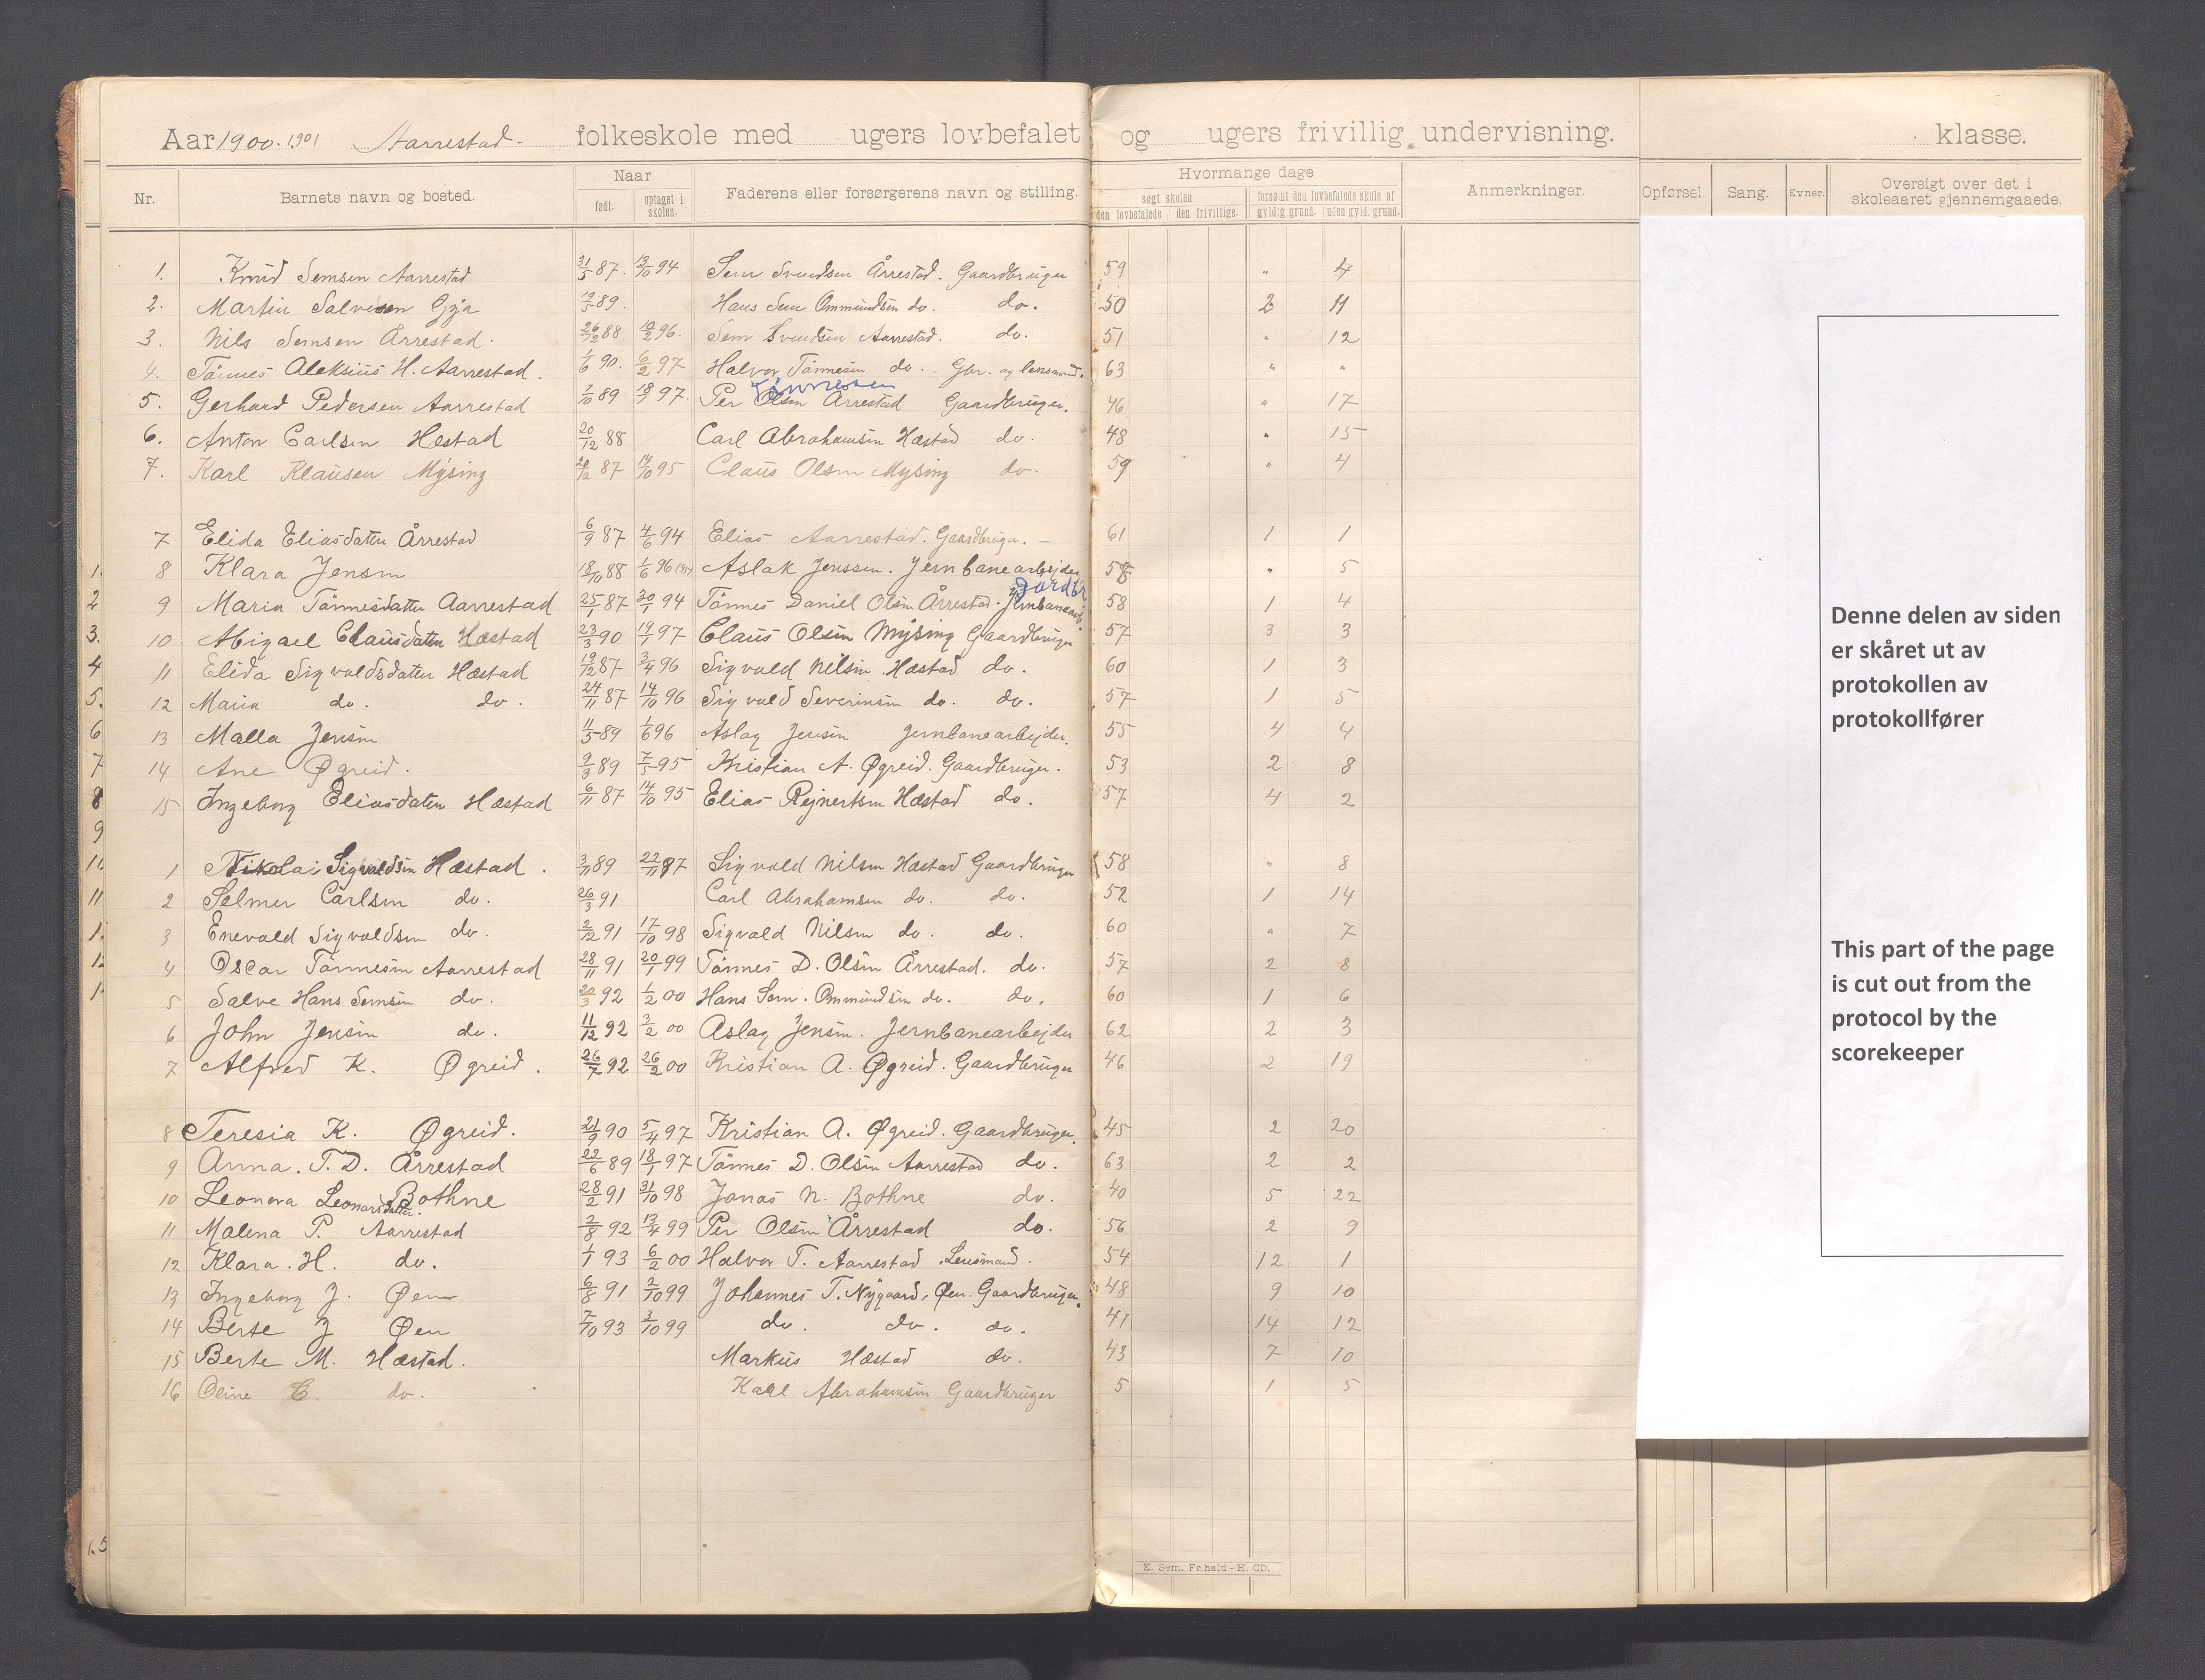 Aar 1900. 1901 Aarrestad. folkeskole med ugers lovbefalet og ugers frivillig undervisning. klasse.
Nr. Barnets navn og bosted. Naar født. optaget i skolen. Faderens eller forsørgerens navn og stilling. Hvormange dage søgt skolen den lovbefalede den frivillige. forsømt den lovbefalede skole af gyldig grund. uden gyld. grund. Anmerkninger. Opførsel Sang. Evner. Oversigt over det i skoleaaret gjennemgaaede.
1. Knud Semsen Aarrestad 31/5 87. 13/10 94 Sem Svendsen Årrestad. Gaardbruger 59 " 4
2. Martin Salvesen Gya 19/5 89. Hans Sem Ommundsen do. do. 50 2 11
3. Nils Semsen Årrestad. 26/12 88 10/2 96. Sem Svendsen Aarrestad. do. 51 " 12
4. Tönnes Aleksius H. Aarrestad. 1/6 90. 6/2 97 Halvor Tönnesen do. Gbr. og lensmand. 63 " "
Tönnesen
5. Gerhard Pedersen Aarrestad 1/10 89 18/1 97. Per Olsen Årrestad Gaardbruger. 46 " 17
6. Anton Carlsen Hestad 20/12 88 Carl Abrahamsen Hæstad do. 48 " 15
7. Karl Klausen Mysing 20/12 87 14/10 95 Claus Olsen Mysing do. 59 " 4
7 Elida Eliasdatter Årrestad 6/9 87 4/6 94 Elias Aarrestad. Gaardbruger. — 61 1 1
1. 8 Klara Jensen 18/10 88 1/6 96 Aslak Jenssen. Jernbanearbejder 58 " 5
Gardbr
2 9 Maria Tönnesdatter Aarrestad 25/1 87 30/1 94 Tönnes Daniel Olsen Årrestad. Jernbanearb. 58 1 4
3. 10 Abigael Clausdatter Hæstad 23/3 90 19/1 97 Claus Olsen Mysing Gaardbruger 57 3 3
4 11 Elida Sigvaldsdatter Hæstad 19/12 87 3/4 96 Sigvald Nilsen Hæstad do. 60 1 3
5. 12 Maria do. do. 24/11 87 14/10 96 Sigvald Severinsen do. do. 57 1 5
6 13 Malla Jensen 11/5 89 1/6 96 Aslag Jensen Jernbanearbejder. 55 4 4
7 14 Ane Øgreid. 9/3 89 7/5 95 Kristian A. Øgreid. Gaardbruger. 53 2 8
8 15 Ingeborg Eliasdatter Hæstad 6/11 87 14/10 95 Elias Rejnertsen Hæstad do. 57 4 2
9
10 1 Nikolai Sigvaldsen Hæstad. 3/11 89 22/11 97 Sigvald Nilsen Hæstad Gaardbruger 58 " 8
11 2 Selmer Carlsen do. 26/3 91 Carl Abrahamsen do. do. 52 1 14
1. 3 Enevald Sigvaldsen do. 2/12 91 17/10 98 Sigvald Nilsen do. do. 60 " 7
1. 4 Oscar Tönnesen Aarrestad 28/11 91 20/1 99 Tönnes D. Olsen Årrestad. do. 57 2 8
1. 5 Salve Hans Semsen do. 20/3 92 1/2 00 Hans Sem. Ommundsen do. do. 60 1 6
6 John Jensen do. 11/12 92 3/2 00 Aslag Jensen. Jernbanearbejder 62 2 3
7 Alfred K. Øgreid. 26/7 92 26/2 00 Kristian A. Øgreid. Gaardbruger 46 2 19
8 Teresia K. Øgreid. 21/9 90 5/4 97 Kristian A. Øgreid. Gaardbruger. 45 2 20
9 Anna. T. D. Årrestad 22/6 89 18/1 97 Tönnes D. Olsen Aarrestad do. 63 2 2
10 Leonora Leonardsdatter. Bothne 28/2 91 31/10 98 Jonas N. Bothne do. 40 5 22
11 Malena P. Aarrestad 2/8 92 13/4 99 Per Olsen Årrestad do. 56 2 9
12 Klara. H. do. 1/1 93 6/2 00 Halvor T. Aarrestad. Lensmand. 54 12 1
13 Ingeborg J. Øen 6/8 91 2/10 99 Johannes T. Nygaard, Øen. Gaardbruger. 48 9 10
14 Berte J Øen 7/10 93 3/10 99 do. do. do. 41 14 12
15 Berte M. Hæstad. Markus Hæstad do. 43 7 10
16 Oline C. do. Karl Abrahamsen Gaardbruger 5 1 5
E. Sem. Fr.hald - H. CD.
Denne delen av siden
er skåret ut av
protokollen av
protokollfører
This part of the page
is cut out from the
protocol by the
scorekeeper